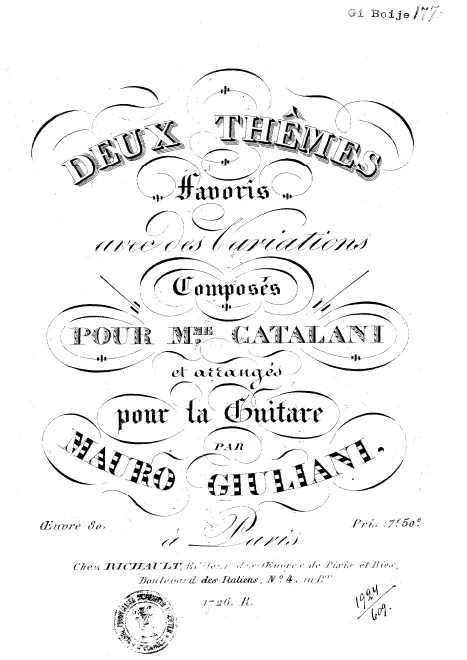 Gi Boije 177.
DEUX THÊMES
Favoris
avec des Variations
Composés
POUR M.ME CATALANI
et arrangés
pour la Guitare
PAR
MAURO GIULIANI.
Œuvre 80.
Prix: 7f 50c
à Paris
Chez RICHAULT, Editeur des Œuvres de Pixis et Ries,
Boulevard des Italiens, No. 4, au 1er
1726. R.
1924
609.